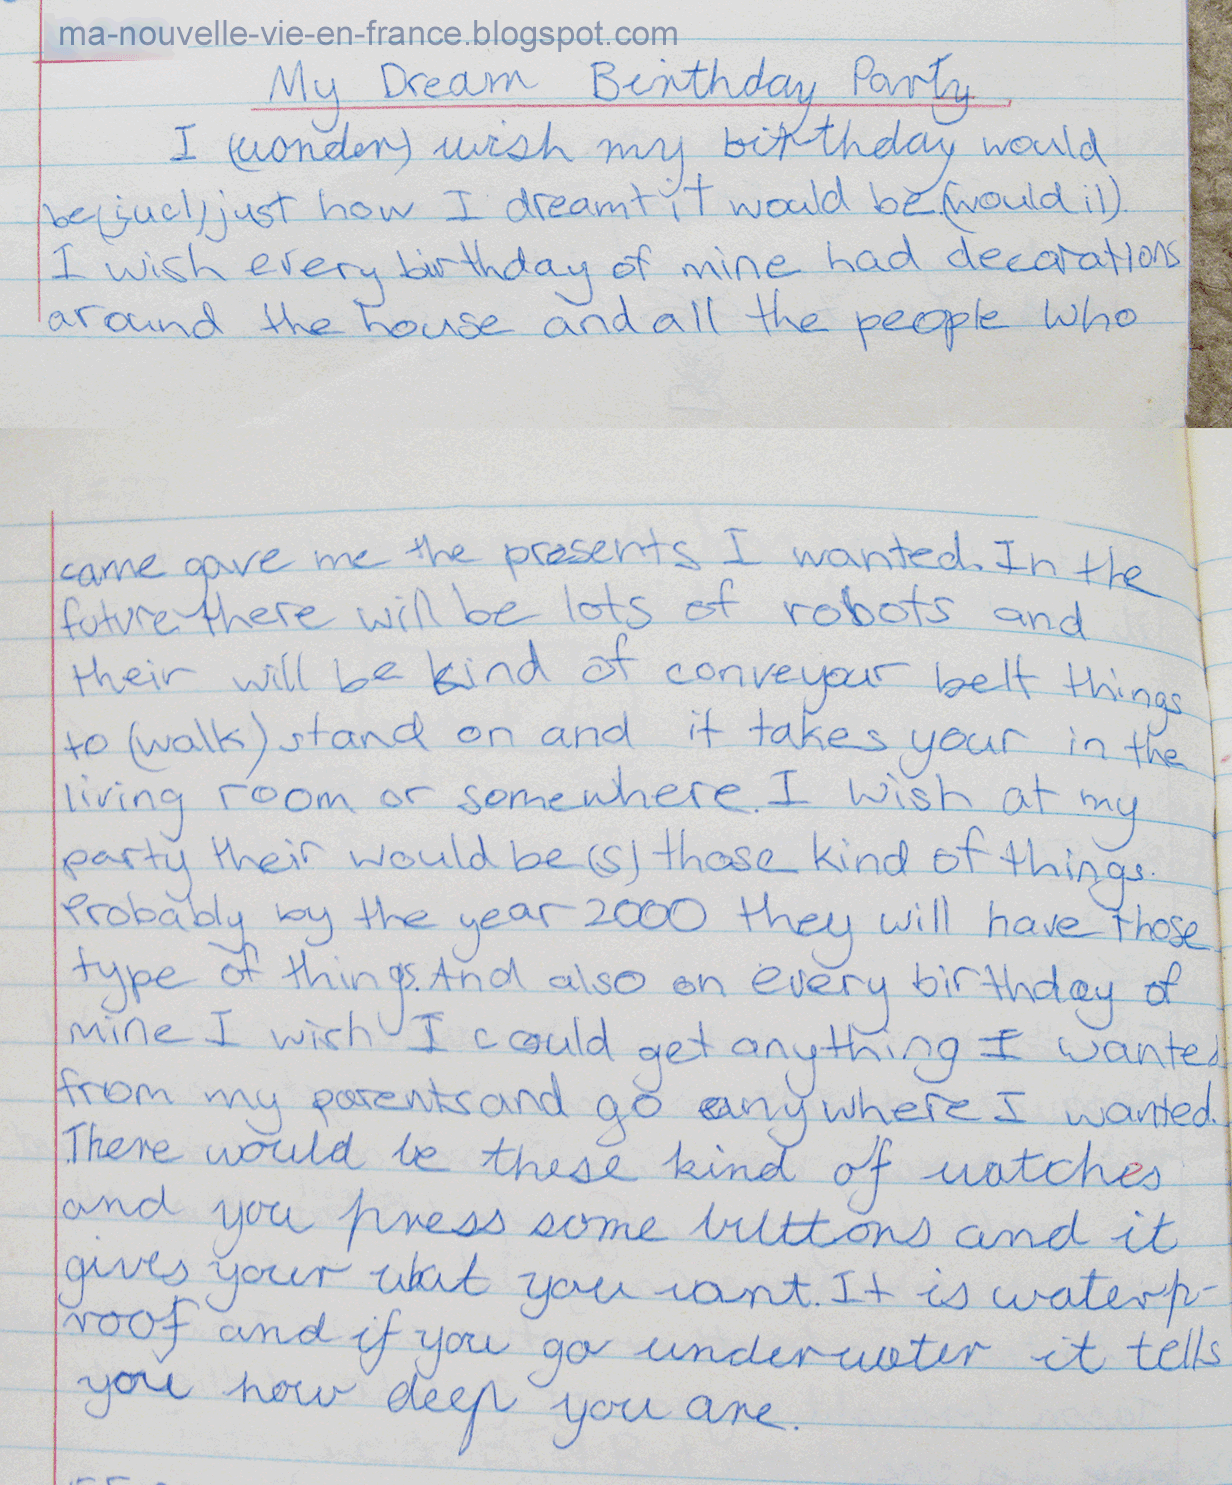 ma-nouvelle-vie-en-france.blogspot.com
My Dream Birthday Party
I (wonder) wish my birthday would
be (juct) just how I dreamt it would be. (would it).
I wish every birthday of mine had decorations
around the house and all the people who
came gave me the presents I wanted. In the
future there will be lots of robots and
their will be kind of conveyour belt things
to (walk) stand on and it takes your in the
living room or somewhere. I wish at my
party their would be (s) those kind of things.
Probably by the year 2000 they will have those
type of things. And also on every birthday of
mine I wish I could get anything I wanted
from my parents and go anywhere I wanted.
There would be these kind of watches
and you press some buttons and it
gives your what you want. It is waterp-
roof and if you go underwater it tells
you how deep you are.